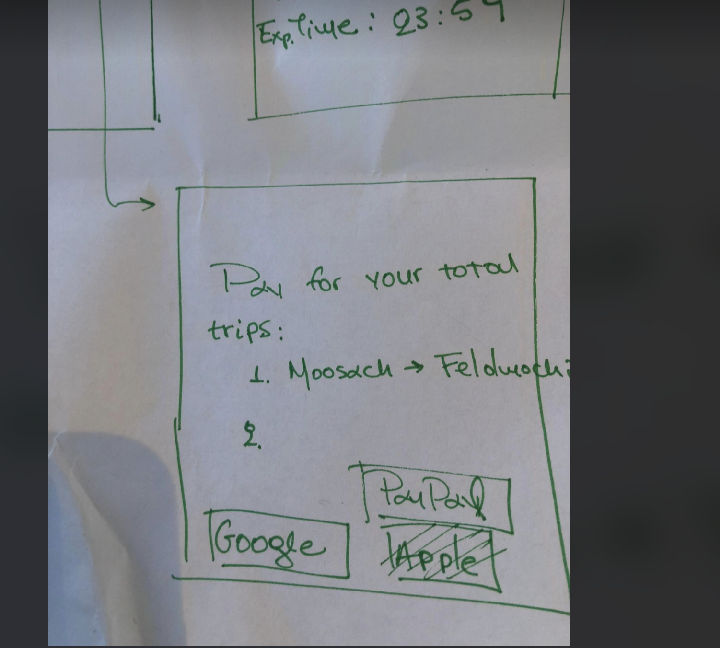 Exp. Time: 23:59
Pay for your total
trips:
1. Moosach → Feldmochi
2.
PayPal
Google
Apple